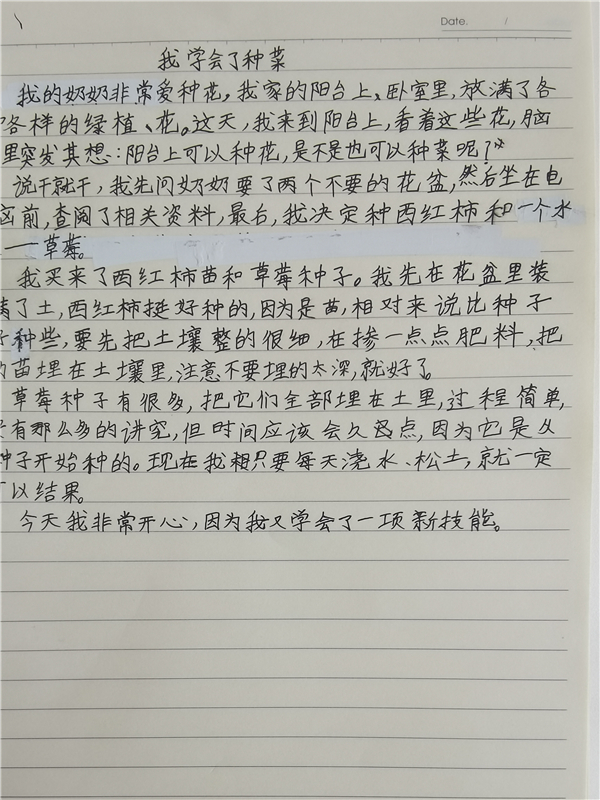 Date. /
我学会了种菜
我的奶奶非常爱种花，我家的阳台上、卧室里，放满了各
各样的绿植、花。这天，我来到阳台上，看着这些花，脑
里突发其想：阳台上可以种花，是不是也可以种菜呢？
说干就干，我先问奶奶要了两个不要的花盆，然后坐在电
前，查阅了相关资料，最后，我决定种西红柿和一个水
——草莓。
我买来了西红柿苗和草莓种子。我先在花盆里装
满了土，西红柿挺好种的，因为是苗，相对来说比种子
种些，要先把土壤整的很细，在掺一点点肥料，把
苗埋在土壤里，注意不要埋的太深，就好了。
草莓种子有很多，把它们全部埋在土里，过程简单，
有那么多的讲究，但时间应该会久点，因为它是从
种子开始种的。现在我相只要每天浇水、松土，就一定
以结果。
今天我非常开心，因为我又学会了一项新技能。